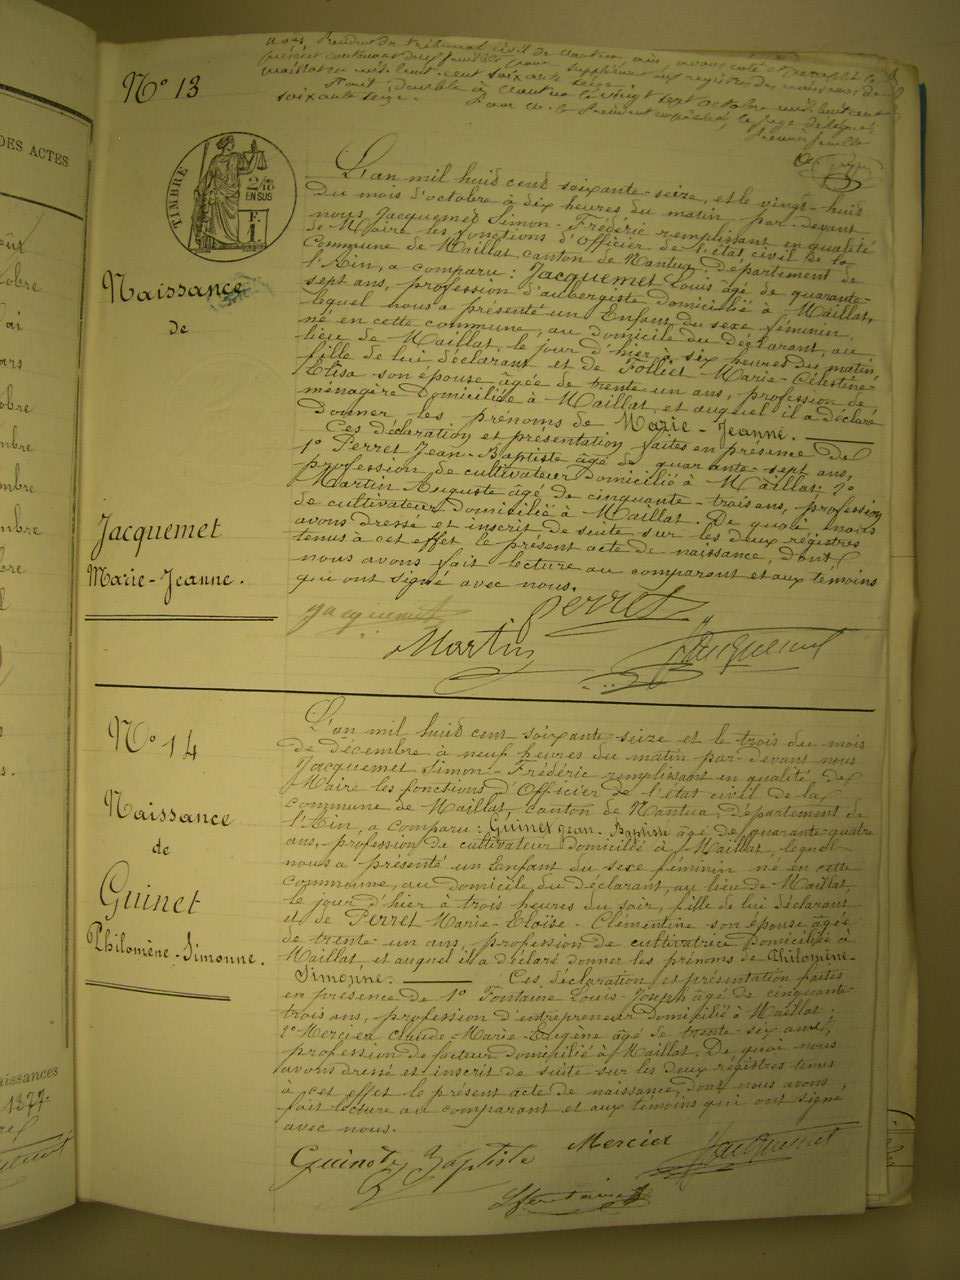 DES ACTES
Nous Président du tribunal civil de Nantua
soixante seize.
N° 13
TIMBRE
2/10
EN SUS
F.
1
Naissance
de
Jacquemet
Marie-Jeanne.
L'an mil huit cent soixante-seize, et le vingt-huit
du mois d'octobre à dix heures du matin, par-devant
nous Jacquemet Simon-Frédéric remplissant en qualité
de Maire les fonctions d'Officier de l'état civil de la
Commune de Maillat, canton de Nantua, département de
l'Ain, a comparu : Jacquemet Louis âgé de quarante-
sept ans, profession d'aubergiste domicilié à Maillat,
lequel nous a présenté un Enfant du sexe féminin
né en cette commune, au domicile du déclarant, au
lieu de Maillat, le jour d'hier à six heures du matin,
fille de lui déclarant et de Folliet Marie-Célestine-
Elisa son épouse âgée de trente un ans, profession de
ménagère domiciliée à Maillat, et auquel il a déclaré
donner les prénoms de Marie-Jeanne.
Ces déclaration et présentation faites en présence de
1° Perret Jean-Baptiste âgé de quarante-sept ans,
profession de cultivateur domicilié à Maillat; 2°
Martin Auguste âgé de cinquante-trois ans, profession
de cultivateur domicilié à Maillat. De quoi nous
avons dressé et inscrit de suite sur les deux registres
tenus à cet effet le présent acte de naissance, dont
nous avons fait lecture au comparant et aux témoins
qui ont signé avec nous.
Jacquemet
Perret
Martin
Jacquemet
N° 14
Naissance
de
Guinet
Philomène-Simonne.
L'an mil huit cent soixante-seize et le trois du mois
de décembre à neuf heures du matin par-devant nous
Jacquemet Simon-Frédéric remplissant en qualité de
Maire les fonctions d'Officier de l'état civil de la
commune de Maillat, canton de Nantua, département de
l'Ain, a comparu : Guinet Jean-Baptiste âgé de quarante-quatre
ans, profession de cultivateur domicilié à Maillat, lequel
nous a présenté un Enfant du sexe féminin né en cette
commune, au domicile du déclarant, au lieu de Maillat,
le jour d'hier à trois heures du soir, fille de lui déclarant
et de Perret Marie-Eloïse-Clémentine son épouse âgée
de trente-un ans, profession de cultivatrice domiciliée à
Maillat et auquel il a déclaré donner les prénoms de Philomène-
Simonne. Ces déclaration et présentation faites
en présence de 1° Fontaine Louis-Joseph âgé de cinquante-
trois ans, profession d'entrepreneur domicilié à Maillat;
2° Mercier Claude-Marie-Eugène âgé de trente-six ans,
profession de facteur domicilié à Maillat. De quoi nous
avons dressé et inscrit de suite sur les deux registres tenus
à cet effet le présent acte de naissance, dont nous avons
fait lecture au comparant et aux témoins qui ont signé
avec nous.
Guinet J Baptiste
Mercier
Jacquemet
Fontaine